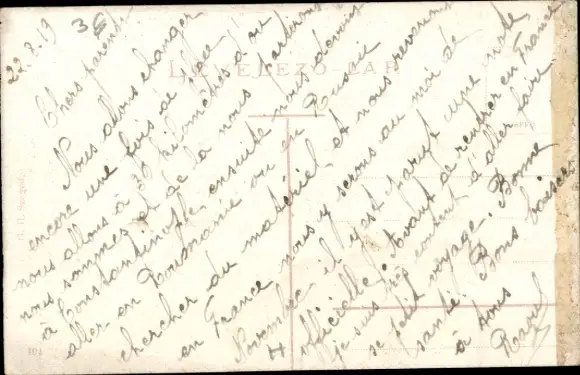 22.8.19
Chers parents
Nous allons changer
encore une fois de place
nous allons à 30 kilomètres d'où
nous sommes et de là nous partirons
à Constantinople, ensuite nous devions
aller en Roumanie ou en Russie
chercher du matériel et nous reverrons
en France nous y serons au moi de
Novembre, il y est parut une note
officielle. Avant de rentrer en France
je suis très content d'aller faire
se petit voyage. Bonne
santé. Bons baisers
à tous
Raoul
LEVELEZŐ-LAP